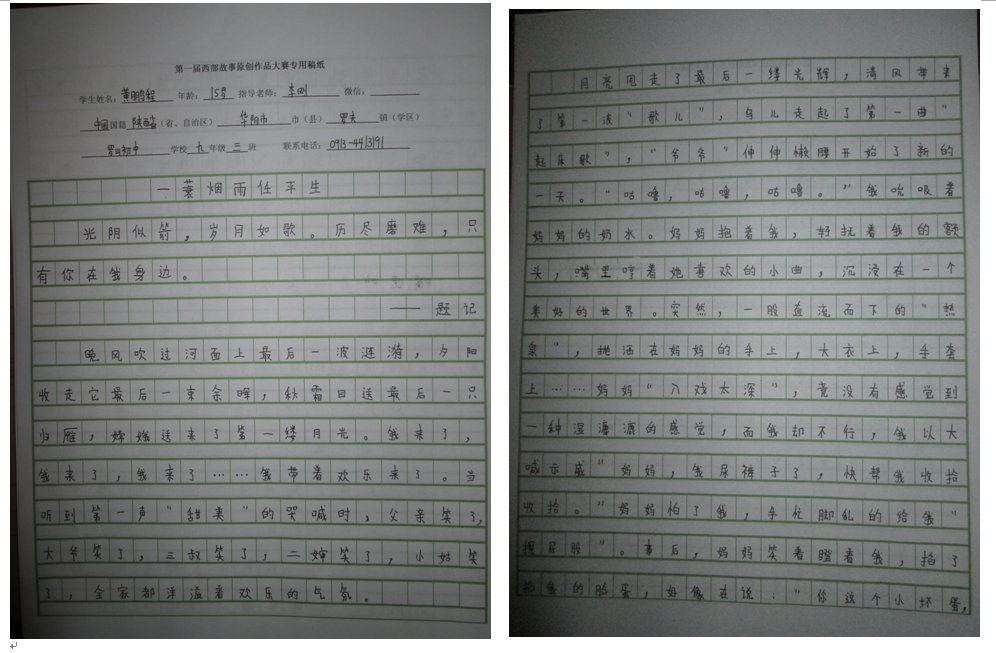 第一届西部故事原创作品大赛专用稿纸
学生姓名：黄鹏程 年龄：15岁 指导老师：李刚 微信：
中国国籍 陕西省（省、自治区） 华阴市 市（县） 罗夫 镇（学区）
罗敷初中 学校 九 年级 三 班 联系电话：0913-4413191
一蓑烟雨任平生
光阴似箭，岁月如歌。历尽磨难，只
有你在我身边。
——题记
晚风吹过河面上最后一波涟漪，夕阳
收走它最后一束余晖，秋霜目送最后一只
归雁，嫦娥送来了第一缕月光。我来了，
我来了，我来了……我带着欢乐来了。当
听到第一声“甜美”的哭喊时，父亲笑了，
大爷笑了，三叔笑了，二婶笑了，小姑笑
了，全家都洋溢着欢乐的气氛。
月亮甩走了最后一缕光辉，清风带来
了第一波“歌儿”，鸟儿走起了第一曲“
起床歌”，“爷爷”伸伸懒腰开始了新的
一天。“咕噜，咕噜，咕噜。”我吮吸着
妈妈的奶水。妈妈抱着我，轻抚着我的额
头，嘴里哼着她喜欢的小曲，沉浸在一个
美好的世界。突然，一股直流而下的“热
泉”，挑洒在妈妈的手上，大衣上，手套
上……妈妈“入戏太深”，竟没有感觉到
一种湿漉漉的感觉，而我却不行，我以大
喊示威“妈妈，我尿裤子了，快帮我收拾
收拾。”妈妈怕了我，手忙脚乱的给我“
擦屁股”。事后，妈妈笑着瞪着我，拍了
拍我的脸蛋，好像在说：“你这个小坏蛋，